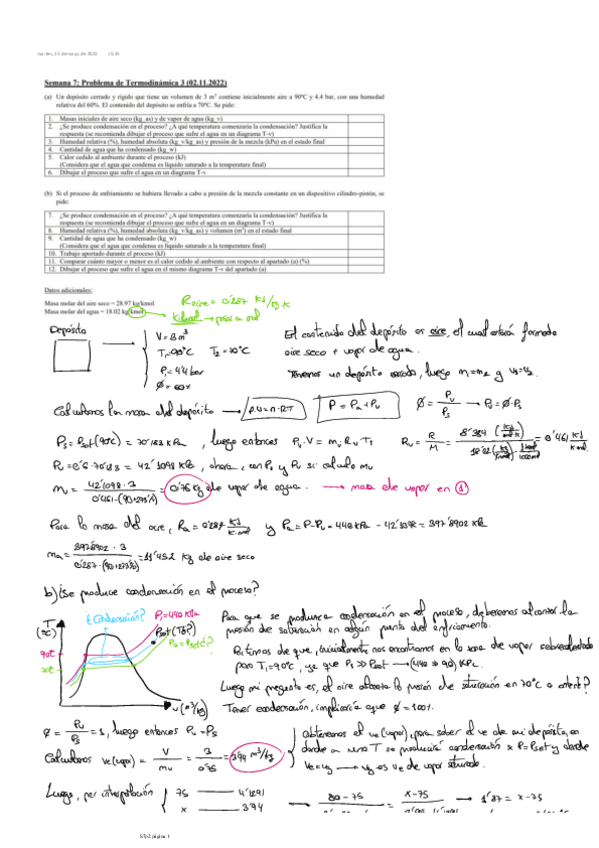 Semana 7: Problema de Termodinámica 3 (02.11.2022)
(a) Un depósito cerrado y rígido que tiene un volumen de 3 m³ contiene inicialmente aire a 90ºC y 4.4 bar, con una humedad
relativa del 60%. El contenido del depósito se enfría a 70ºC. Se pide:
1. Masas iniciales de aire seco (kg_as) y de agua de vapor (kg_v)
2. ¿Se produce condensación en el proceso? ¿A qué temperatura comenzaría la condensación? Justifica la
respuesta (se recomienda dibujar el proceso que sufre el agua en un diagrama T-v)
3. Humedad relativa (%), humedad absoluta (kg_v/kg_as) y presión de la mezcla (kPa) en el estado final
4. Cantidad de agua que ha condensado (kg_w)
5. Calor cedido al ambiente durante el proceso (kJ)
(Considera que el agua que condensa es líquido saturado a la temperatura final)
6. Dibujar el proceso que sufre el agua en un diagrama T-v
(b) Si el proceso de enfriamiento se hubiera llevado a cabo a presión de la mezcla constante en un dispositivo cilindro-pistón, se
pide:
7. ¿Se produce condensación en el proceso? ¿A qué temperatura comenzaría la condensación? Justifica la
respuesta (se recomienda dibujar el proceso que sufre el agua en un diagrama T-v)
8. Humedad relativa (%), humedad absoluta (kg_v/kg_as) y volumen (m³) en el estado final
9. Cantidad de agua que ha condensado (kg_w)
(Considera que el agua que condensa es líquido saturado a la temperatura final)
10. Trabajo aportado durante el proceso (kJ)
11. Comparar cuánto mayor o menor es el calor cedido al ambiente con respecto al apartado (a) (%)
12. Dibujar el proceso que sufre el agua en el mismo diagrama T-v del apartado (a)
Datos adicionales:
Masa molar del aire seco = 28.97 kg/kmol
Masa molar del agua = 18.02 kg/kmol
R aire = 0'287 kJ/kg K
Depósito
V = 3 m³
T₁ = 90°C T₂ = 70°C
P₁ = 4'4 bar
Ø = 60%
El contenido del depósito es aire, el cual estará formado
aire seco + vapor de agua.
Tenemos un depósito cerrado, luego m₁=m₂ y v₁=v₂.
Calculamos la masa del depósito → P·V=n·RT P = Pa + Pv Ø = Pv/Ps → Pv = Ø·Ps
Ps = Psat(90°C) = 70'183 kPa, luego entonces Pv·V = mv·Rv·T₁ Rv = R/M
Pv = 0'6·70'183 = 42'1098 kPa, ahora, con Pv y Rv si calculo mv
mv = 42'1098·3 / 0'461·(90+273'15) = 0'76 kg de vapor de agua. → masa de vapor en ①
Para la masa del aire, Ra = 0'287 kJ/K·kg y Pa = P-Pv = 440 kPa - 42'1098 = 397'8902 kPa
ma = 397'8902 · 3 / 0'287·(90+273'15) = 11'452 kg de aire seco
b) ¿se produce condensación en el proceso?
¿Condensación? P₁=440 kPa
T (°C)
90°C
v (m³/kg)
Para que se produzca condensación en el proceso, deberemos alcanzar la
presión de saturación en algún punto del enfriamiento.
Partimos de que, inicialmente nos encontramos en la zona de vapor sobrecalentado
para T₁=90°C, ya que
Luego mi pregunta es, el aire alcanza la presión de saturación en 70°C o antes?
Tener condensación, implicaría que Ø=100%.
Ø = Pv/Ps = 1, luego entonces Pv=Ps
Calculamos ve(vapor) = V/mv = 3/0'76 = 3'94 m³/kg
obtenemos el ve (vapor), para saber el ve de mi depósito, en
donde a una T se producirá condensación x P=Psat y donde
ve=vg → vg es ve de vapor saturado.
Luego, por interpolación 75 — 4'1291
x — 3'94
80-75 = x-75 → 1'87 = x-75